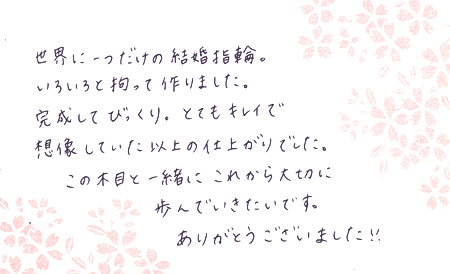 世界に一つだけの結婚指輪。
いろいろと拘って作りました。
完成してびっくり。とてもキレイで
想像していた以上の仕上がりでした。
この木目と一緒にこれから大切に
歩んでいきたいです。
ありがとうございました!!